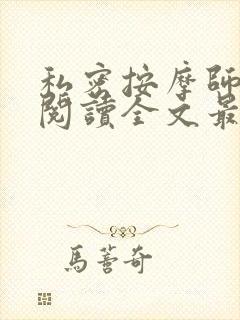 私密按摩師
閱讀全文最
馬薏奇